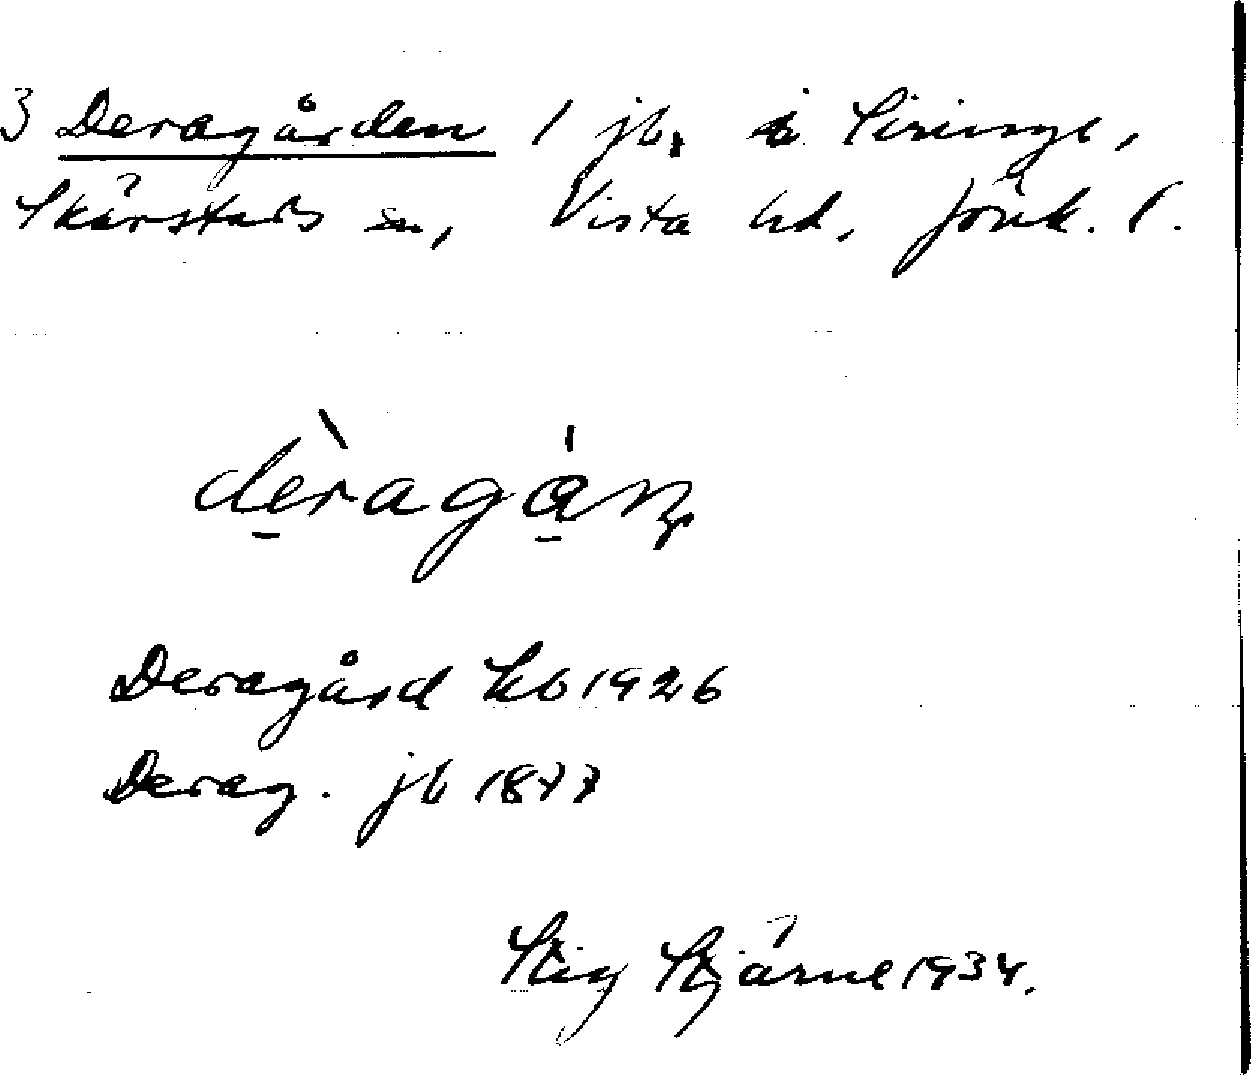 3 Deragården 1 jb, i Siringe,
Skärstads sn, Vista hd, Jönk. l.
dèragán
Deragård kb 1926
Derag. jb 1877
Stig Stjärne 1934.